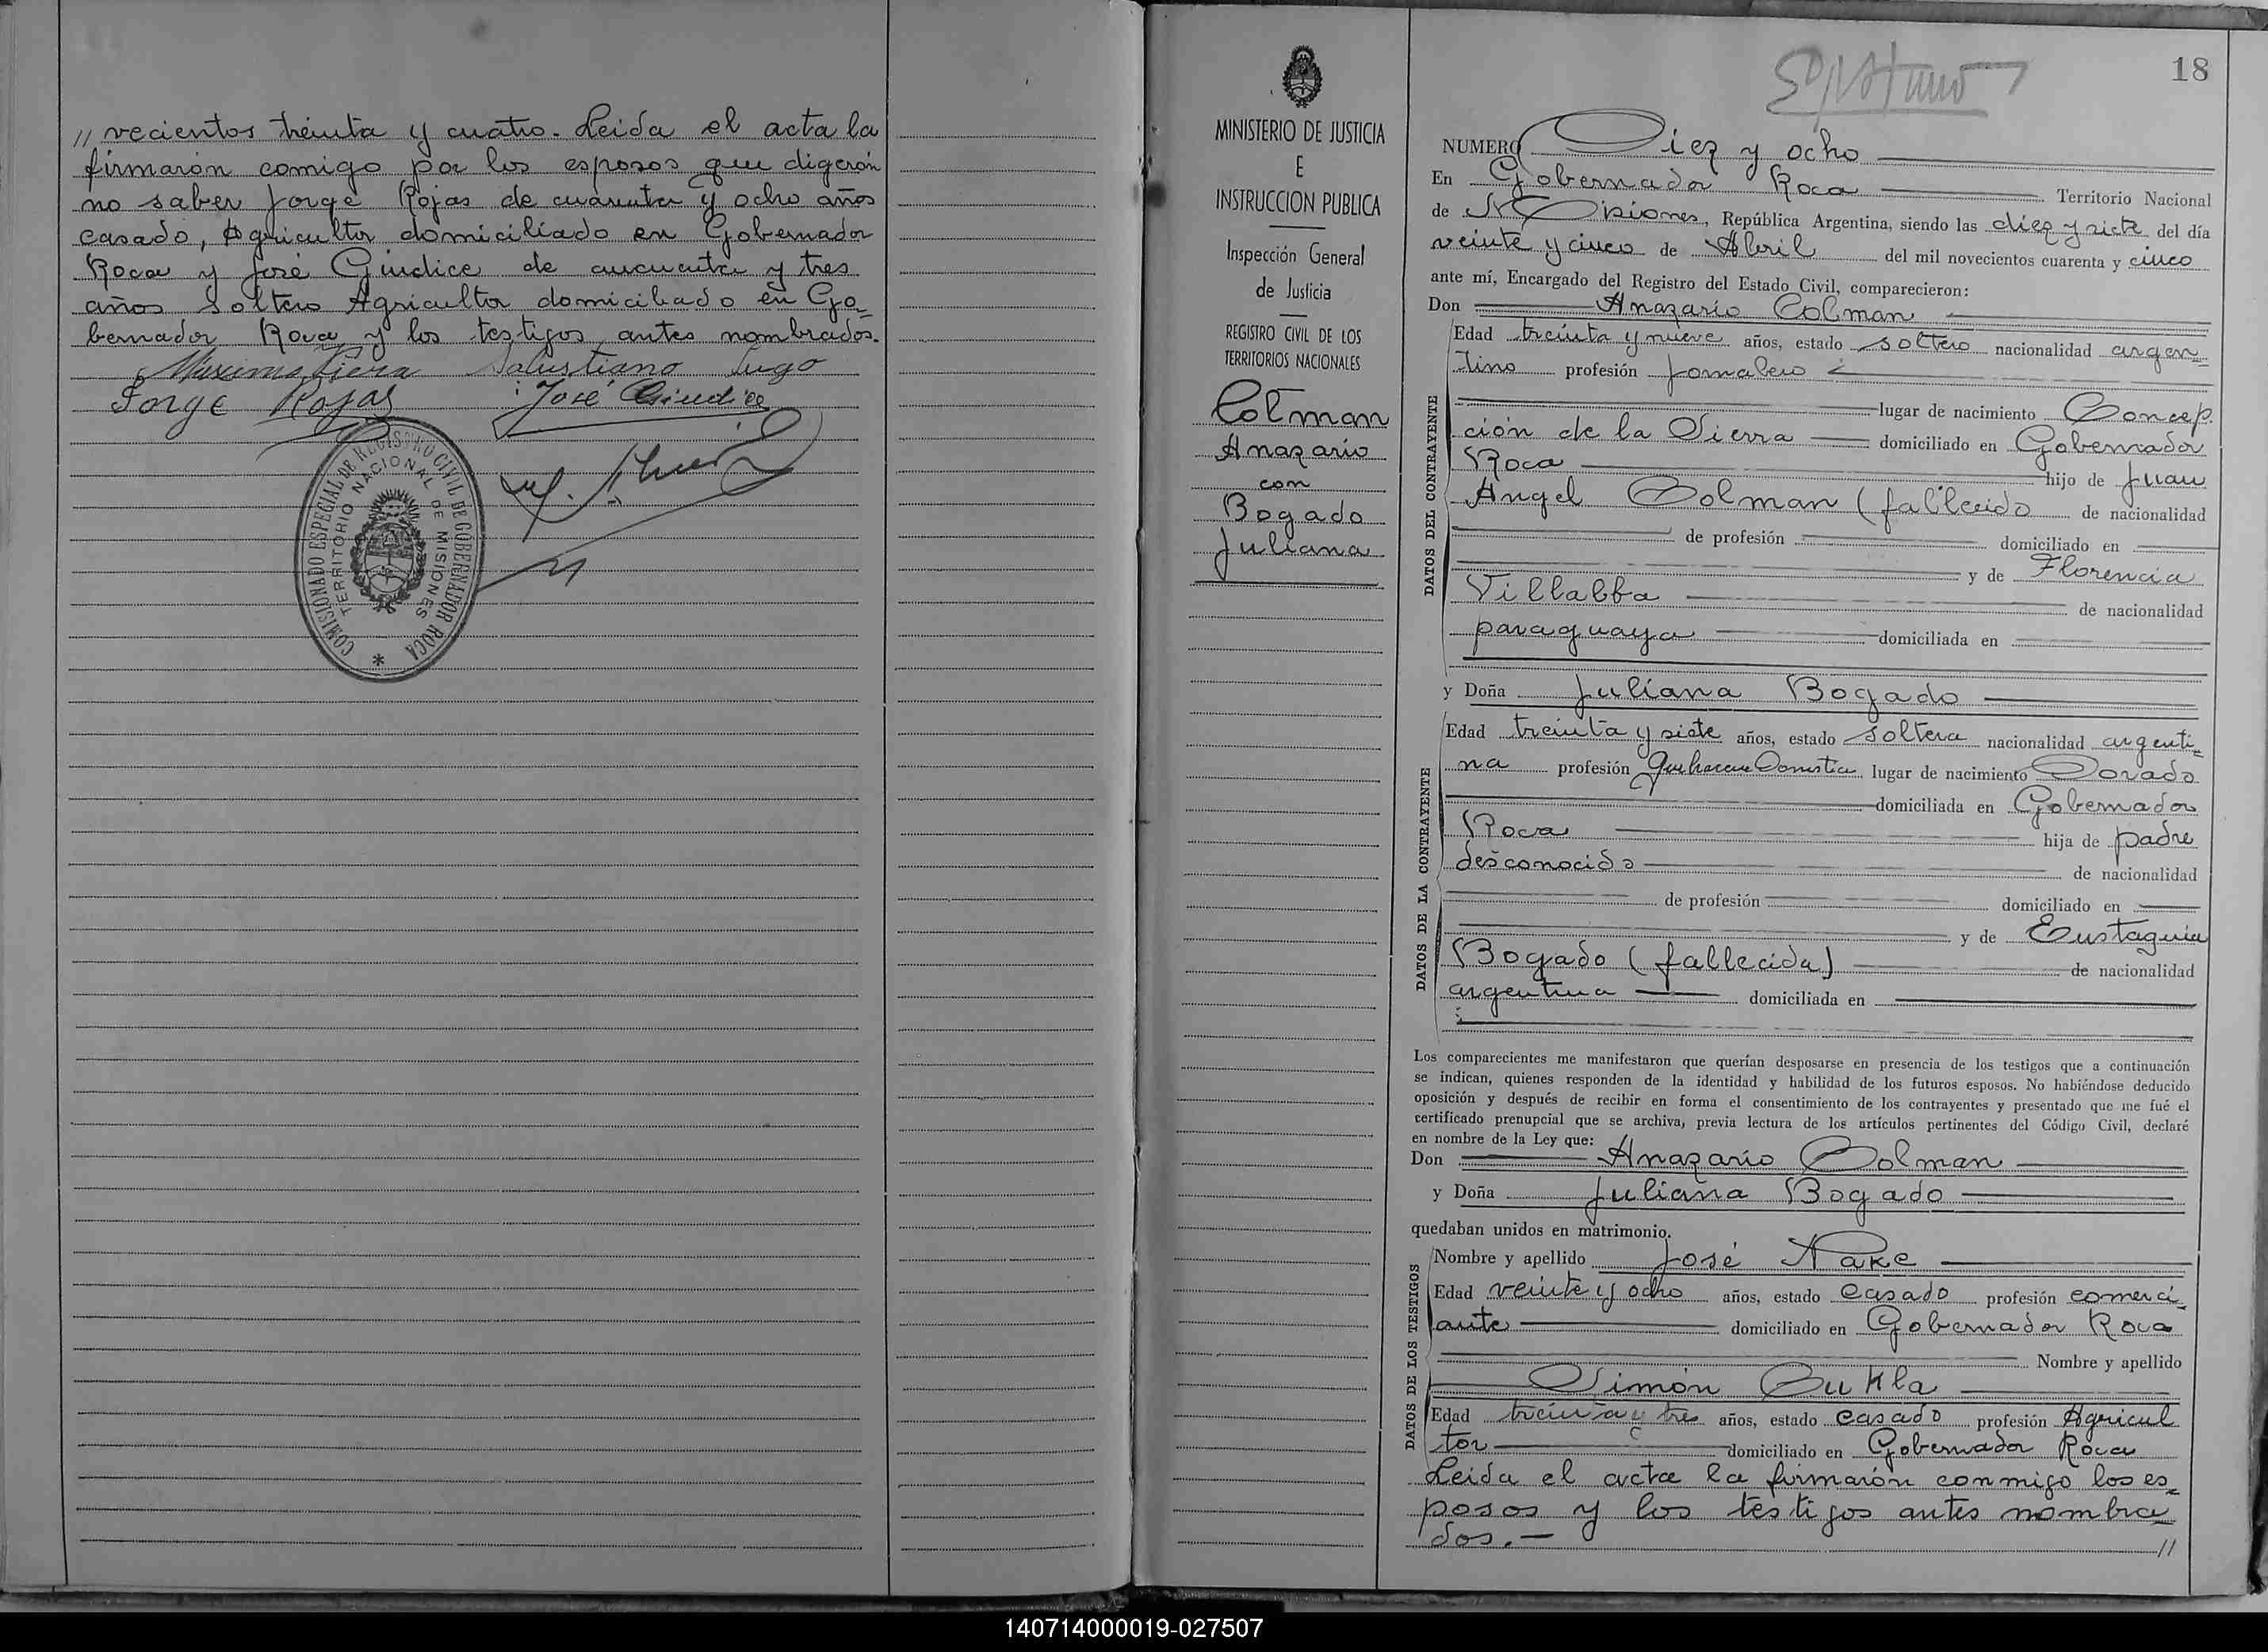 // vecientos treinta y cuatro. Leida el acta la
firmarón comigo por los esposos que digerón
no saber Jorge Rojas de cuarenta y ocho años
casado, Agricultor domiciliado en Gobernador
Roca y José Giudice de cincuenta y tres
años Soltero Agricultor domiciliado en Go-
bernador Roca y los testigos antes nombrados.
Salustiano Lugo
Jorge Rojas José Giudice
COMISIONADO ESPECIAL DE REGISTRO CIVIL DE GOBERNADOR ROCA
TERRITORIO NACIONAL DE MISIONES
MINISTERIO DE JUSTICIA
E
INSTRUCCION PUBLICA
Inspección General
de Justicia
REGISTRO CIVIL DE LOS
TERRITORIOS NACIONALES
Colman
Anazario
con
Bogado
Juliana
18
NUMERO Diez y ocho
En Gobernador Roca Territorio Nacional
de Misiones, República Argentina, siendo las diez y siete del día
veinte y cinco de Abril del mil novecientos cuarenta y cinco
ante mí, Encargado del Registro del Estado Civil, comparecieron:
Don Anazario Colman
DATOS DEL CONTRAYENTE
Edad treinta y nueve años, estado soltero nacionalidad argen-
tino profesión Jornalero
lugar de nacimiento Concep
ción de la Sierra domiciliado en Gobernador
Roca hijo de Juan
Angel Colman (fallecido de nacionalidad
de profesión domiciliado en
y de Florencia
Villalba de nacionalidad
paraguaya domiciliada en
y Doña Juliana Bogado
DATOS DE LA CONTRAYENTE
Edad treinta y siete años, estado soltera nacionalidad argenti-
na profesión Domestica lugar de nacimiento Dorado
domiciliada en Gobernador
Roca hija de padre
desconocido de nacionalidad
de profesión domiciliado en
y de Eustaquia
Bogado (fallecida) de nacionalidad
argentina domiciliada en
Los comparecientes me manifestaron que querían desposarse en presencia de los testigos que a continuación
se indican, quienes responden de la identidad y habilidad de los futuros esposos. No habiéndose deducido
oposición y después de recibir en forma el consentimiento de los contrayentes y presentado que me fué el
certificado prenupcial que se archiva, previa lectura de los artículos pertinentes del Código Civil, declaré
en nombre de la Ley que:
Don Anazario Colman
y Doña Juliana Bogado
quedaban unidos en matrimonio.
DATOS DE LOS TESTIGOS
Nombre y apellido José Nake
Edad veinte y ocho años, estado casado profesión comerci-
ante domiciliado en Gobernador Roca
Nombre y apellido
Simón Cukla
Edad treinta y tres años, estado casado profesión Agricul
tor domiciliado en Gobernador Roca
Leida el acta la firmarón conmigo los es-
posos y los testigos antes nombra-
dos.— //
140714000019-027507